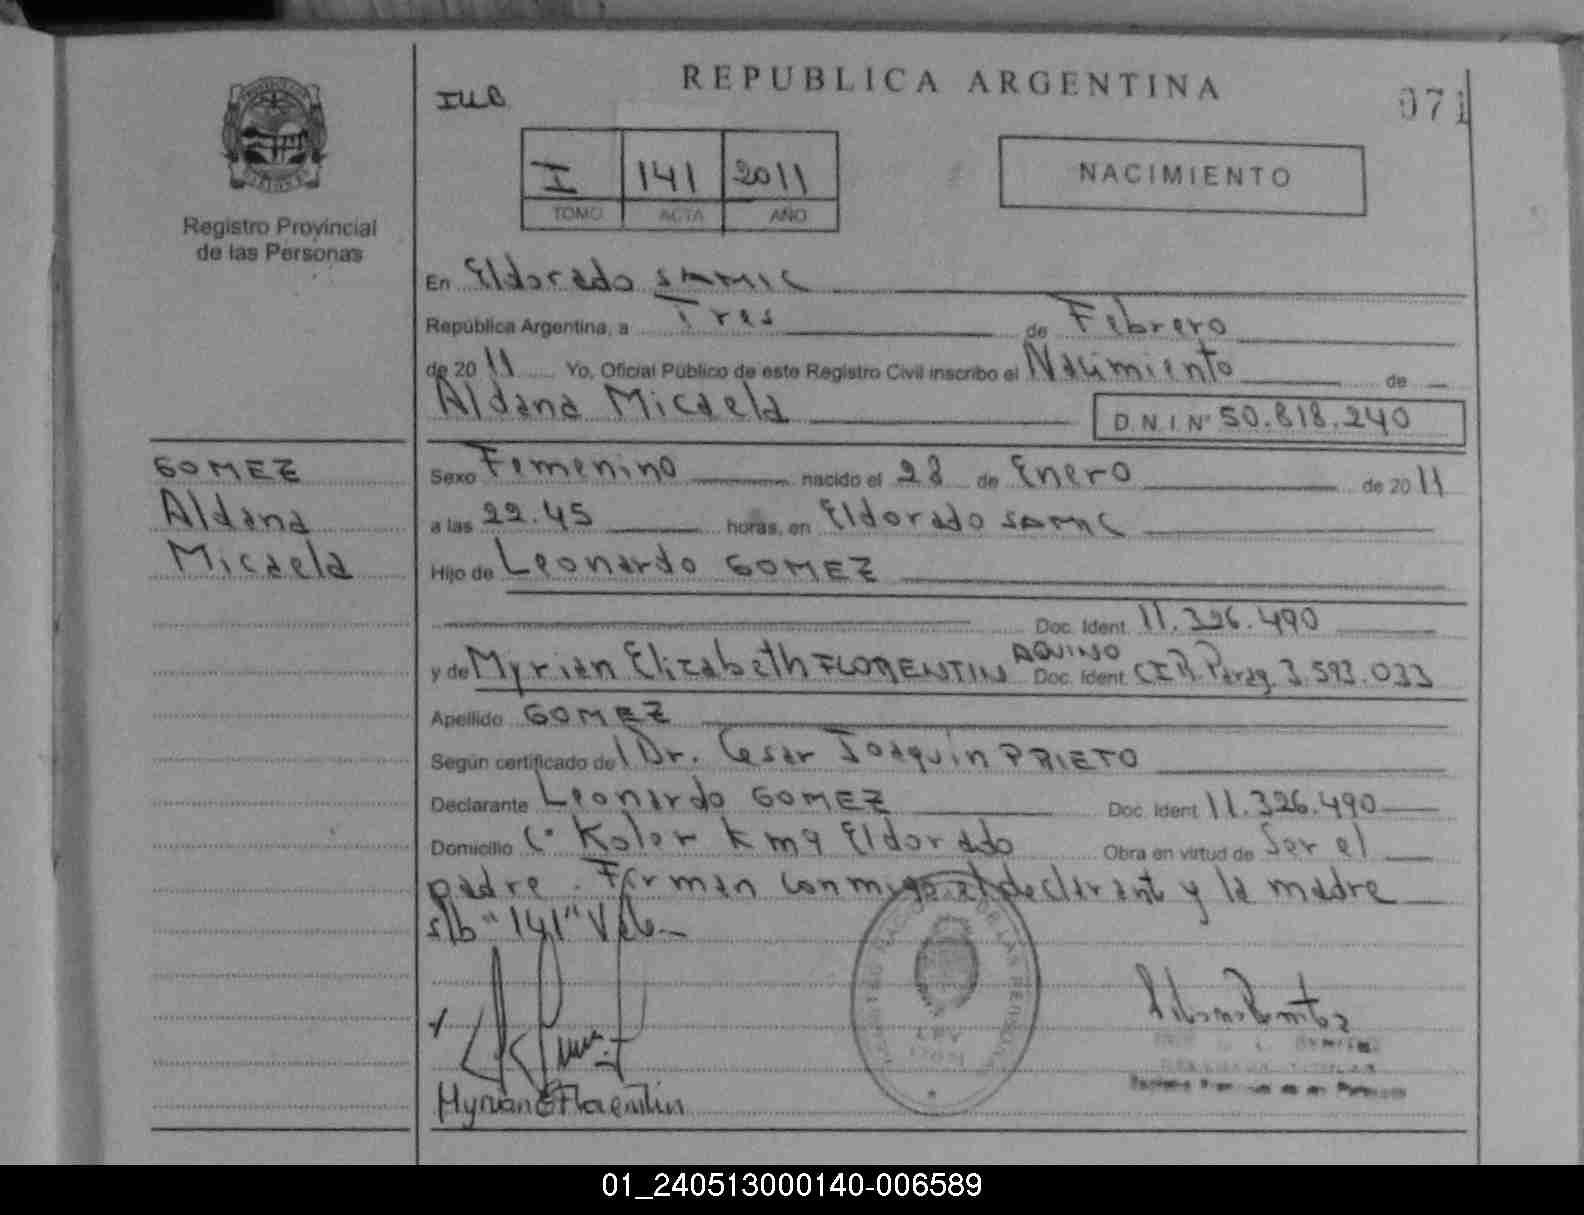 REPUBLICA ARGENTINA
071
I
141
2011
TOMO
ACTA
AÑO
NACIMIENTO
Registro Provincial
de las Personas
En Eldorado SAMIC
República Argentina, a Tres de Febrero
de 2011 Yo, Oficial Público de este Registro Civil inscribo el Nacimiento de
Aldana Micaela D.N.I.Nº 50.818.240
GOMEZ
Aldana
Micaela
Sexo Femenino nacido el 28 de Enero de 2011
a las 22.45 horas, en Eldorado SAMIC
Hijo de Leonardo GOMEZ
Doc. Ident. 11.326.490
y de Myrian Elizabeth FLORENTIN AQUINO Doc. Ident. CIR. Parag 3.593.033
Apellido GOMEZ
Según certificado del Dr. Cesar Joaquin PRIETO
Declarante Leonardo GOMEZ Doc. Ident 11.326.490
Domicilio Cº Koler Km 9 Eldorado Obra en virtud de Ser el
padre. Firman conmigo el declarant y la madre
s/b "141" Vale
Myrian E Florentin
01_240513000140-006589